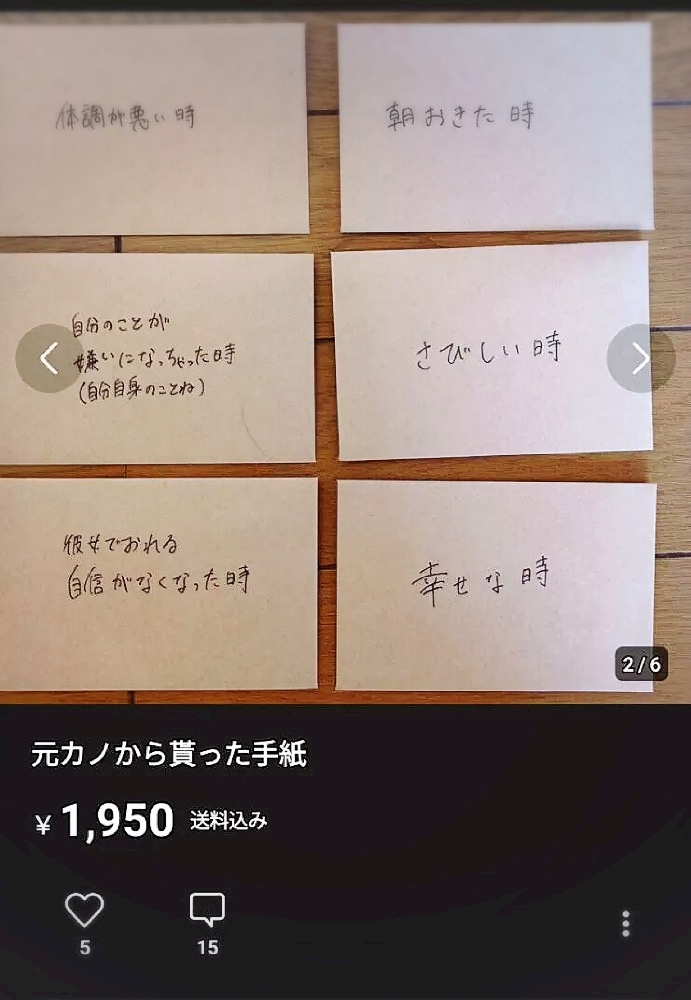 体調が悪い時
朝おきた時
自分のことが
嫌いになっちゃった時
(自分自身のことね)
さびしい時
彼女でおれる
自信がなくなった時
幸せな時
2/6
元カノから貰った手紙
¥1,950 送料込み
5
15